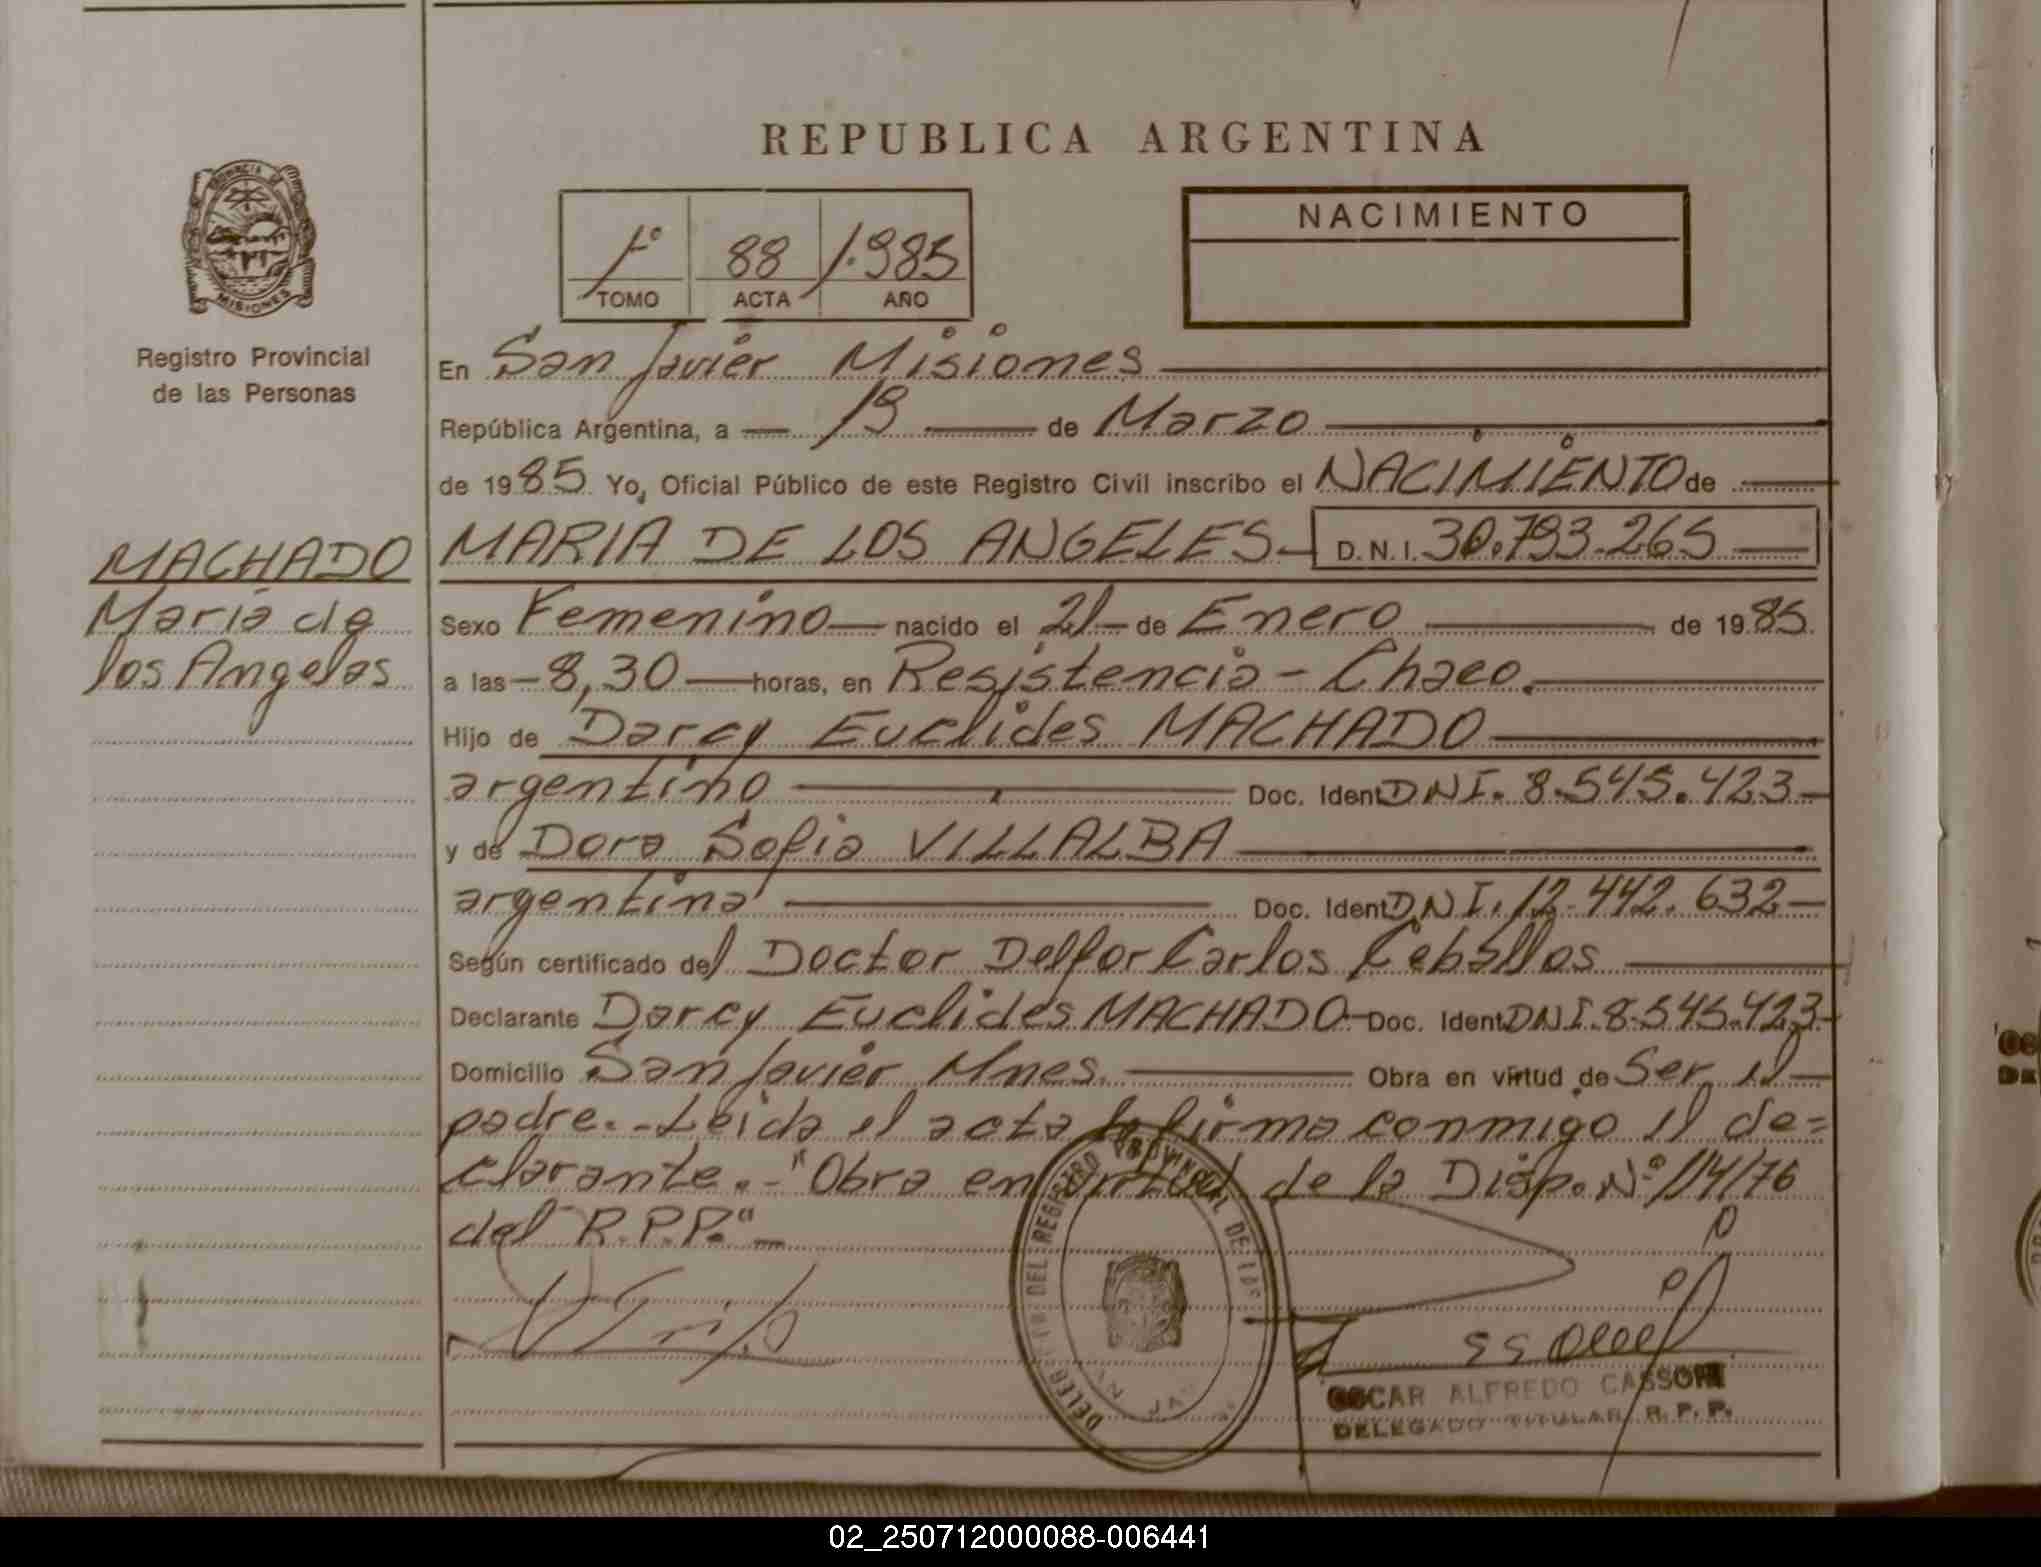 PROVINCIA DE
MISIONES
Registro Provincial
de las Personas
MACHADO
Maria de
los Angeles
REPUBLICA ARGENTINA
1º 88 1.985
TOMO ACTA AÑO
NACIMIENTO
En San Javier Misiones
República Argentina, a 19 de Marzo
de 1985 Yo, Oficial Público de este Registro Civil inscribo el NACIMIENTO de
MARIA DE LOS ANGELES D.N.I. 30.793.265
Sexo Femenino nacido el 21 de Enero de 1985
a las 8,30 horas, en Resistencia - Chaco.
Hijo de Darcy Euclides MACHADO
argentino Doc. Ident DNI. 8.545.423
y de Dora Sofia VILLALBA
argentina Doc. Ident DNI. 12.442.632
Según certificado del Doctor Delfor Carlos Ceballos
Declarante Darcy Euclides MACHADO Doc. Ident DNI. 8.545.423
Domicilio San Javier Mnes. Obra en virtud de Ser el
padre.- Leida el acta la firma conmigo el de=
clarante.- "Obra en virtud de la Disp. Nº 114/76
del R.P.P."-
DEL REGISTRO PROVINCIAL DE LAS
OSCAR ALFREDO CASSONI
DELEGADO TITULAR R. P. P.
02_250712000088-006441